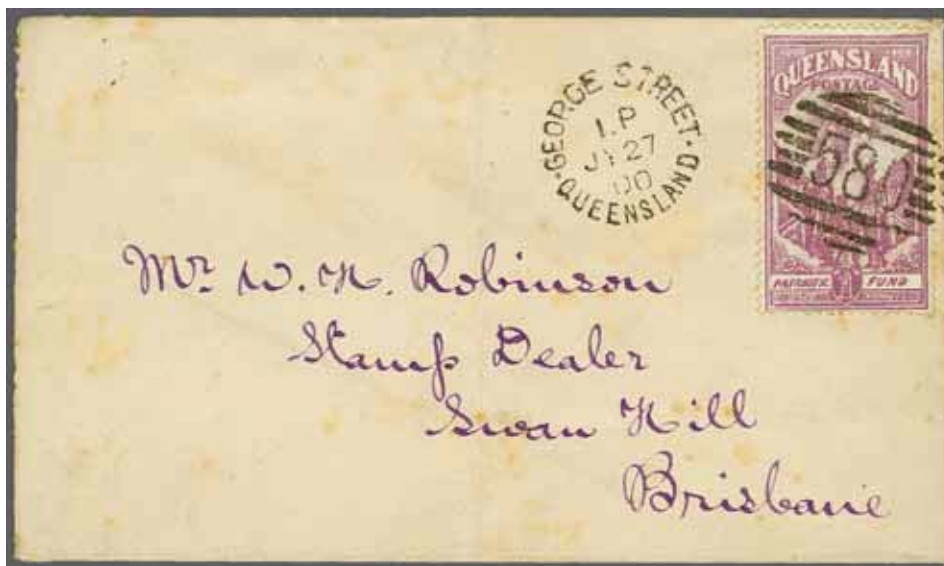 GEORGE STREET
1.P
JY 27
00
QUEENSLAND
QUEENSLAND
POSTAGE
580
PATRIOTIC FUND
Mr. W. H. Robinson
Stamp Dealer
Swan Hill
Brisbane